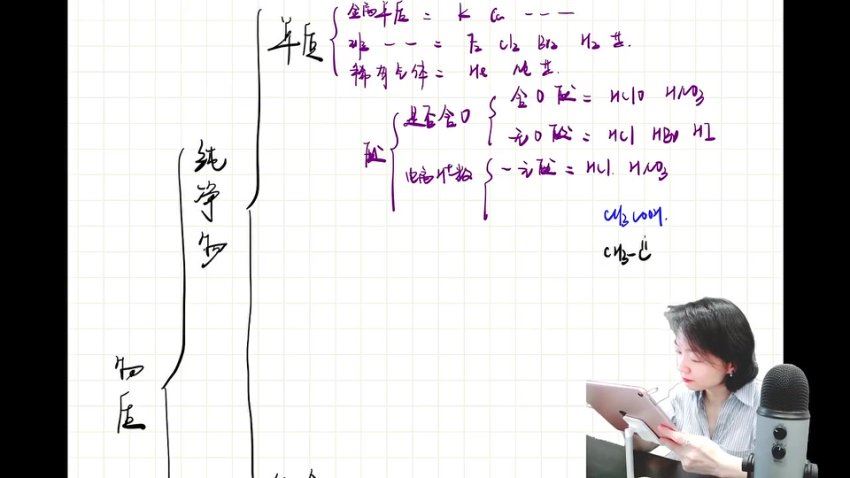 单质
金属单质 = K Ca ----
非 -- = F2 Cl2 Br2 H2 等.
稀有气体 = He Ne 等.
酸
是否含O
含O酸 = HClO HNO3
无O酸 = HCl HBr HI
电离H+数
一元酸 = HCl. HNO3
CH3COOH.
CH3-C
纯净物
物质